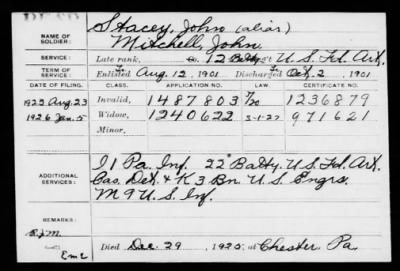 Stacey, John (alias)
NAME OF SOLDIER: Mitchell, John.
SERVICE: Late rank, Co. 12 Batty, Reg't U.S. Fd. Art.
TERM OF SERVICE: Enlisted Aug. 12, 1901 Discharged Oct. 2, 1901.
DATE OF FILING. CLASS. APPLICATION NO. LAW. CERTIFICATE NO.
1923 Aug. 23 Invalid, 1487803 1236879
1926 Jan. 5 Widow, 1240622 5-1-27 971621
Minor,
ADDITIONAL SERVICES: I 1 Pa. Inf. 22" Batty. U.S. Fd. Art.
Cas. Det. & K 3 Bn. U.S. Engrs.
M 9 U.S. Inf.
REMARKS:
Died Dec. 29, 1925, at Chester, Pa.